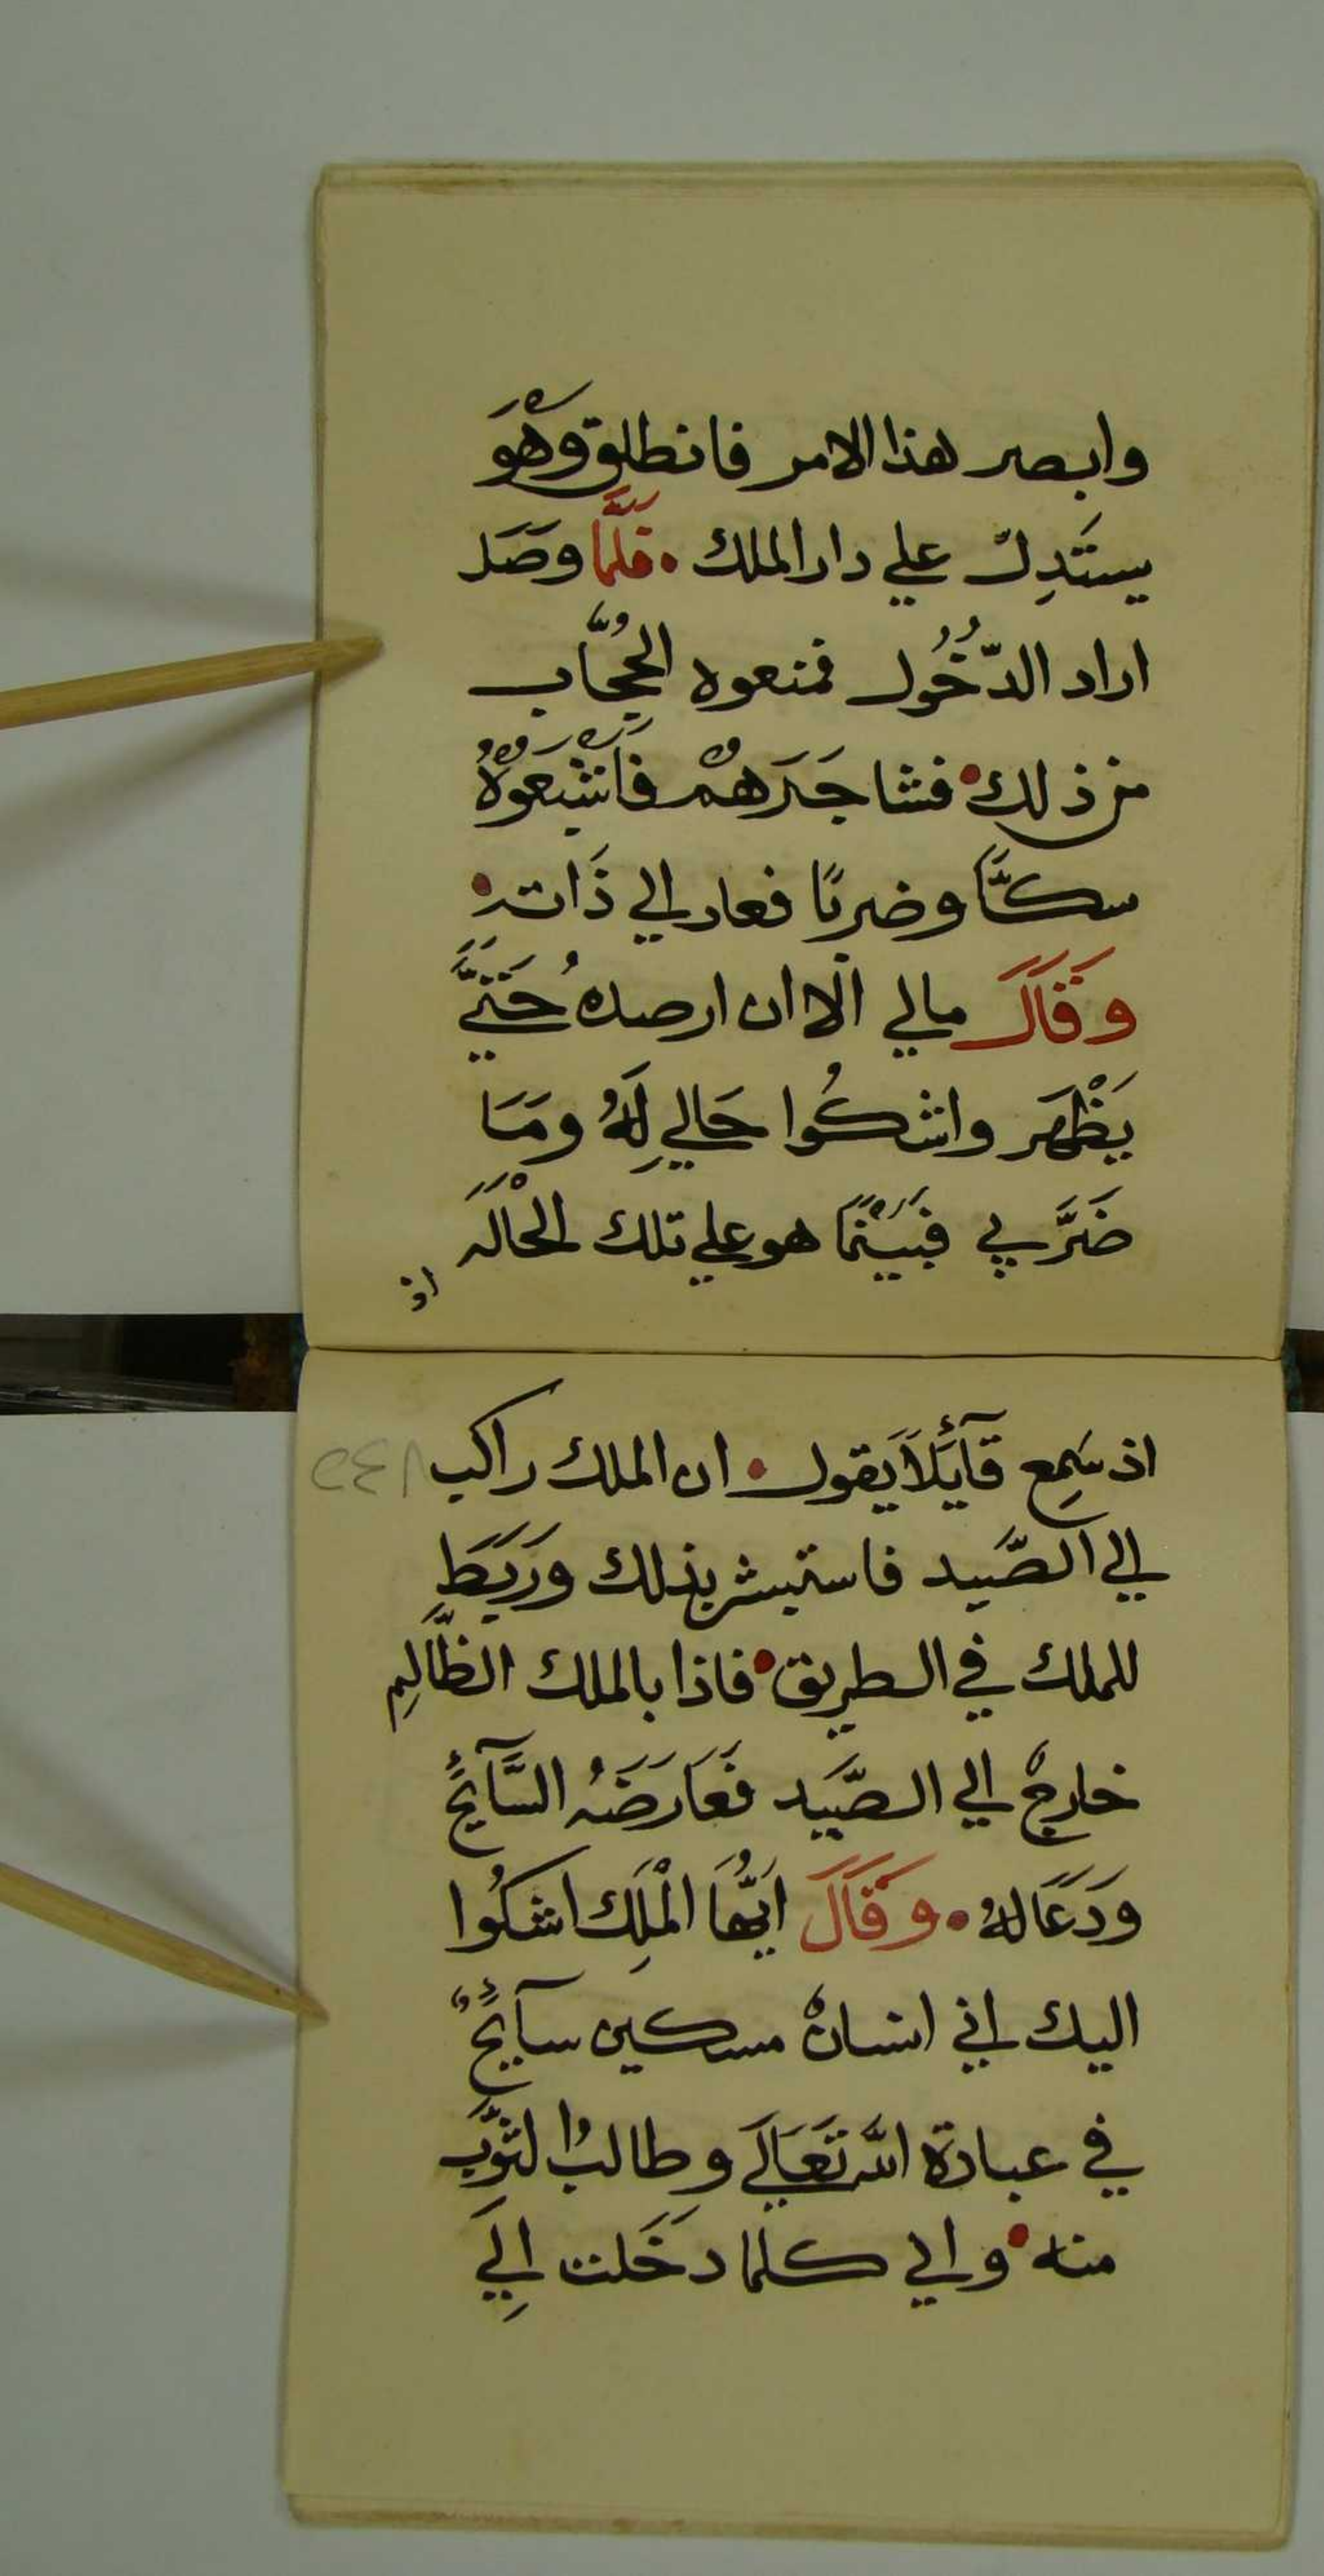 وابصر هذا الامر فانطلق وَهْوَ
يستَدِلّ علي دار الملك • فَلَمَّا وصَل
اراد الدّخُول فمنعوه الحُجَّاب
من ذلك • فشاجَرَهُمْ فَاَشْبَعَوْهُ
سكًّا وضربًا فعاد الي ذَاته •
وَقَالَ مالي الّا ان ارصدهُ حَتَّيَ
يَظْهَر واشكُوا حَالي لَهُ ومَا
ضَرَّ بي فَبَيْنَمَا هو علي تلك الْحَالَه
اذ
اذ سَمِع قَآئِلاً يَقول • ان الملك راكب
الي الصَّيد فاستبشر بذلك ورَبَطَ
للملك في الطريق • فاذا بالملك الظَّالِم
خارجٌ الي الصَّيَد فَعَارَضَهُ السَّآئِحُ
ودَعَا لهُ • وقَالَ اَيُّهَا الْمَلِك اشكُوا
اليك اني انسانٌ مسكين سآئِحٌ
في عبادة الله تَعَالَي وطالبُ لثَّوَب
منه • واني كلما دخَلت اِلَي